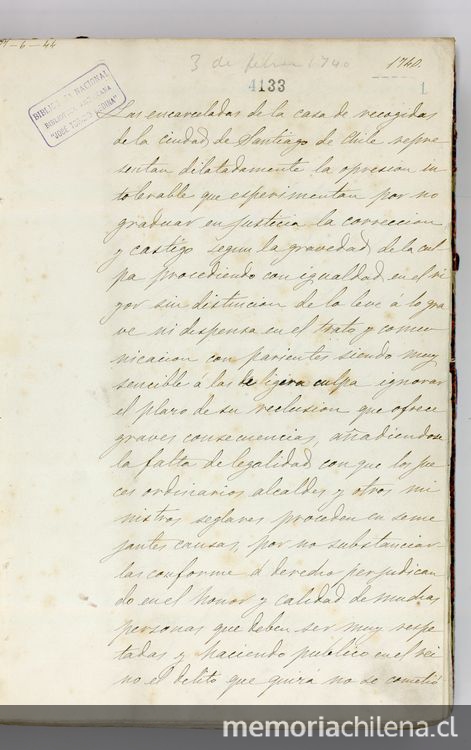 3 de febrero 1740
1740.
4133
1
BIBLIOTECA NACIONAL
BIBLIOTECA AMERICANA
"JOSÉ TORIBIO MEDINA"
Las encarceladas de la casa de recogidas
de la ciudad de Santiago de Chile repre
sentan dilatadamente la opresion in
tolerable que esperimentan por no
graduar en justicia la correccion
y castigo segun la gravedad de la cul
pa procediendo con igualdad en el ri
gor sin distincion de lo leve á lo gra
ve ni dispensa en el trato y comu
nicacion con parientes siendo muy
sencible á las de ligera culpa ignorar
el plazo de su reclusion que ofrece
graves consecuencias, añadiendose
la falta de legalidad con que los jue
ces ordinarios alcaldes y otros mi
nistros seglares proceden en seme
jantes causas, por no substanciar
las conforme á derecho perjudican
do en el honor y calidad de muchas
personas que deben ser muy respe
tadas y haciendo público en el rei
no el delito que quizá no se cometió
memoriachilena.cl